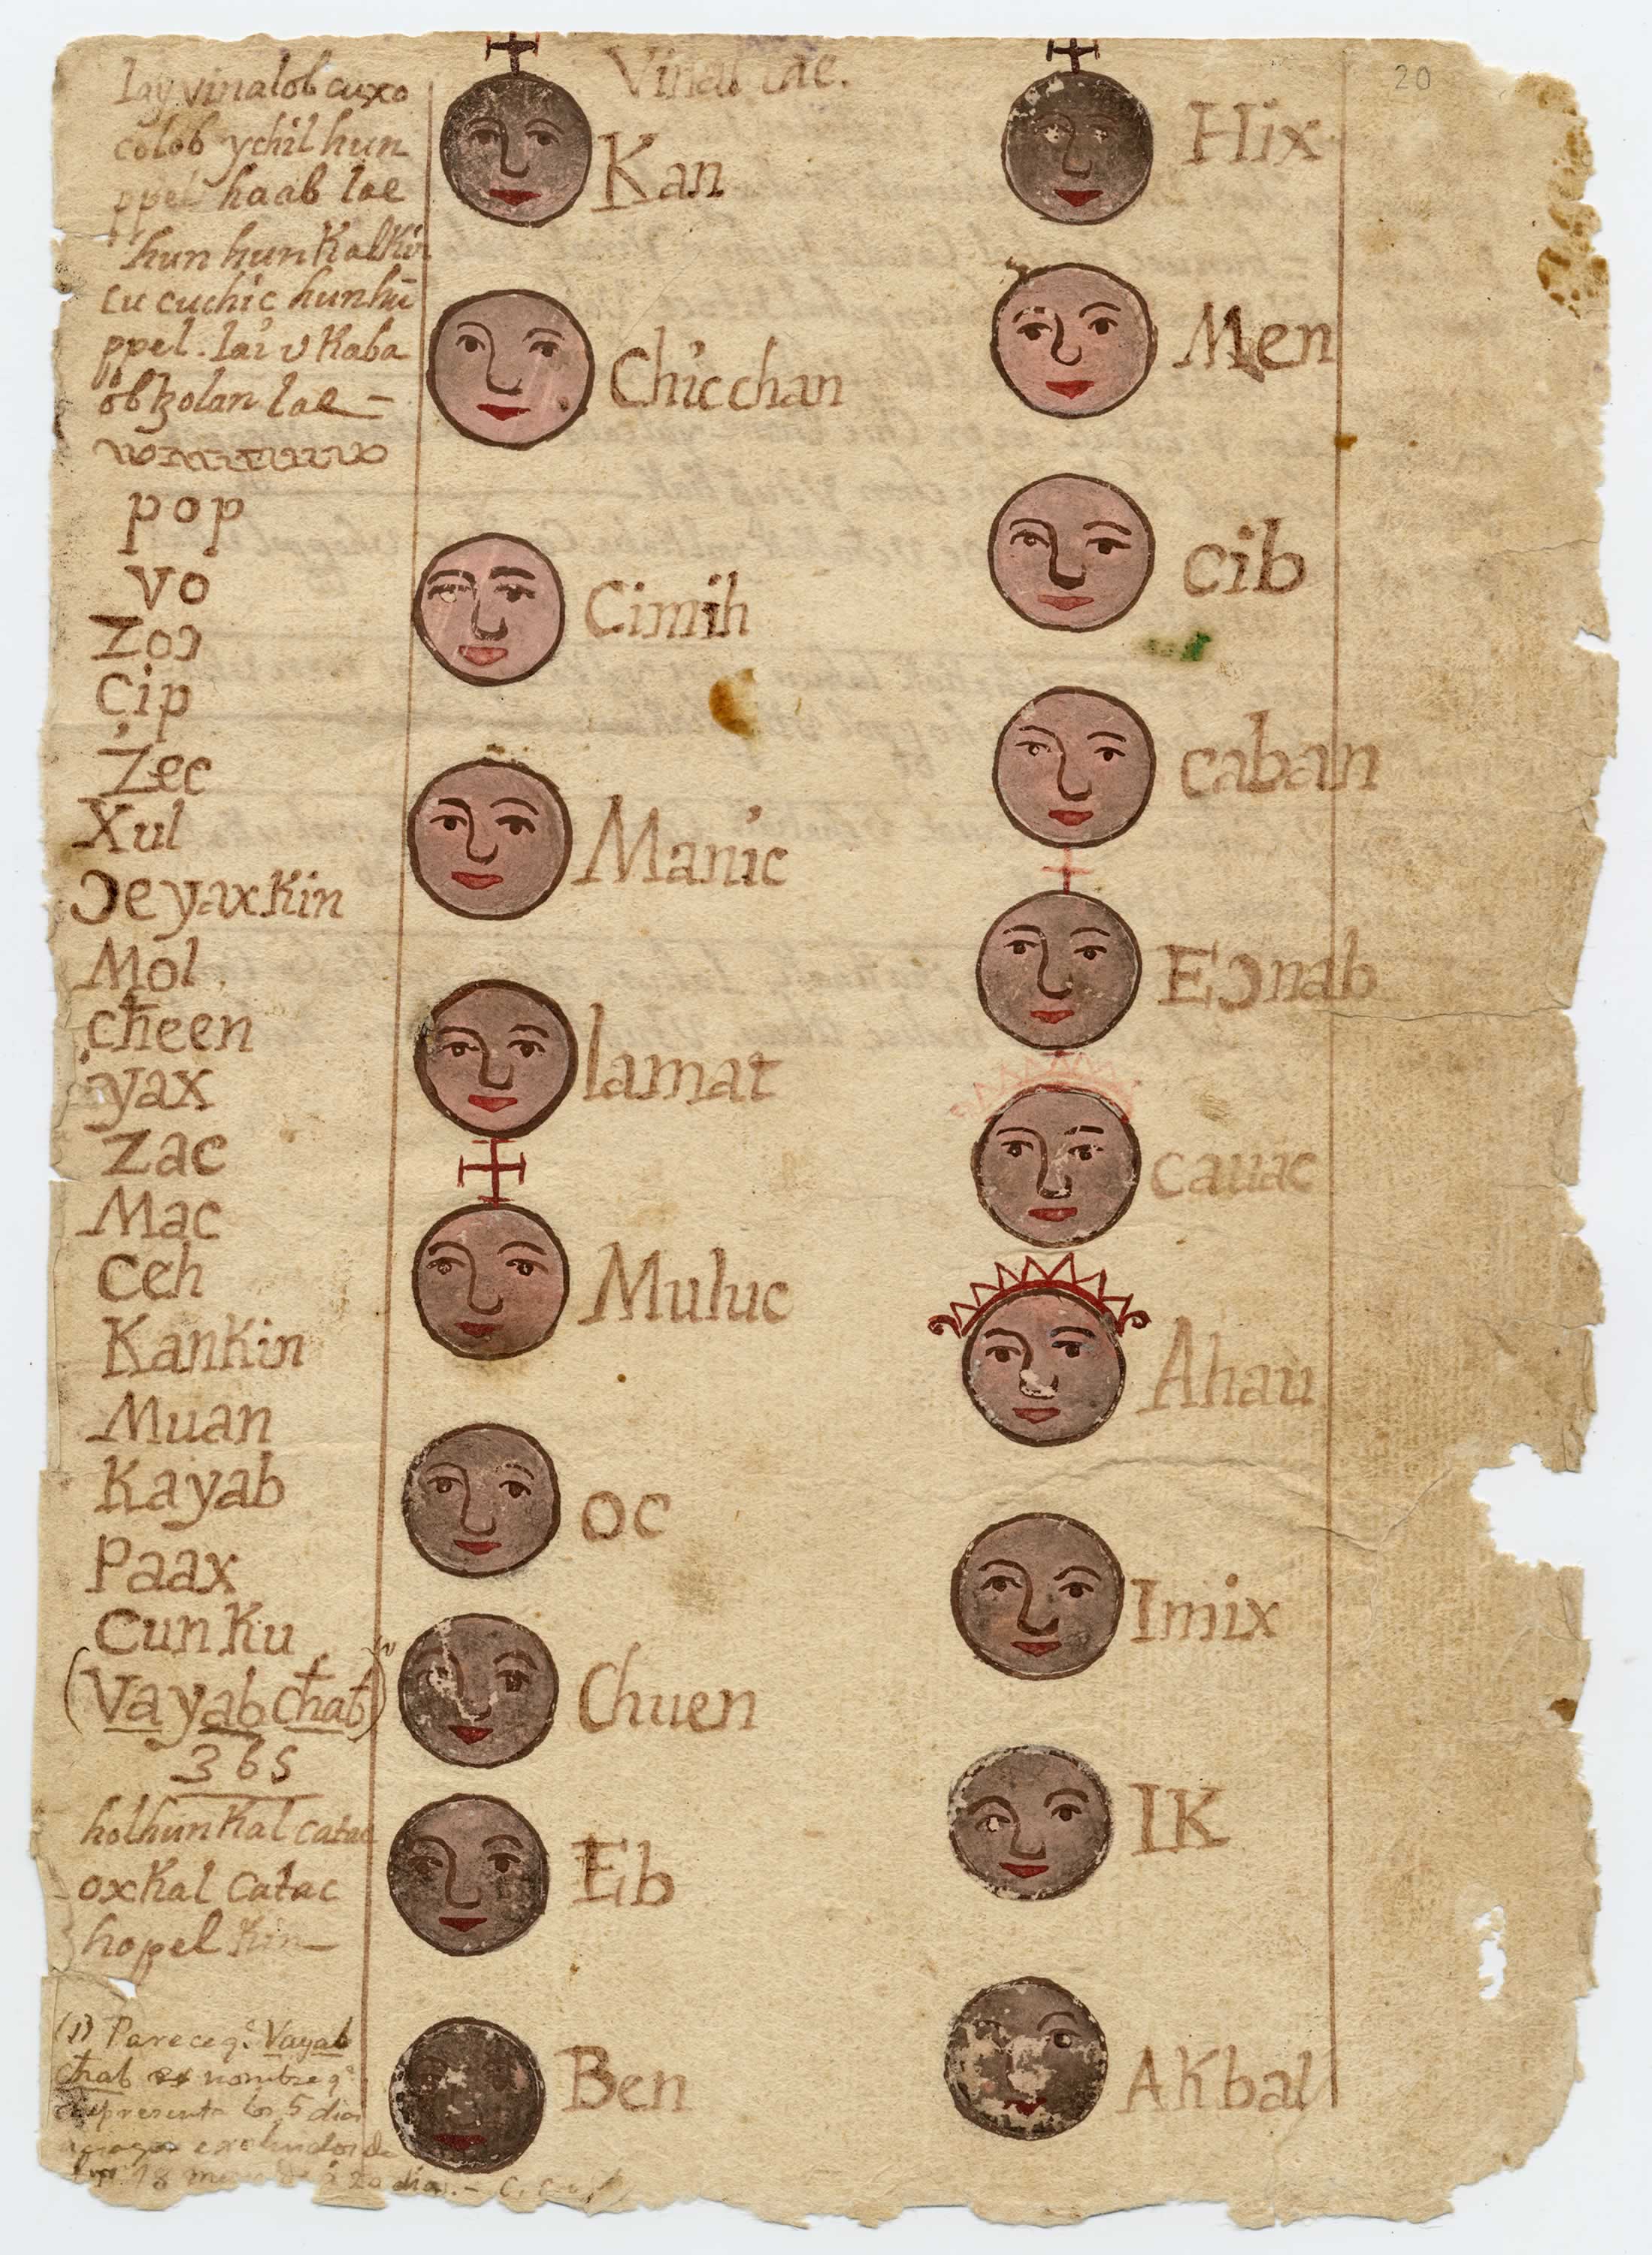 lay vinalob cuxo
colob ychil hun
ppel haab lae
hun hun Kal Kin
cu cuchic hunhū
ppel. lai v Kaba
ob tzolan lae —
pop
vo
Zoɔ
Çip
Zec
Xul
Ɔeyaxkin
Mol
cħeen
yax
Zac
Mac
Ceh
KanKin
Muan
Kayab
Paax
CunKu
(Vayab cħab)
365
holhun Kal catac
oxKal catac
hopel kin —
(1) Parece q.e Vayab
cħab es nombre q.e
representa los 5 dias
18 de á 20 dias. -
Vinal lae.
Kan
Chicchan
Cimih
Manic
lamat
Muluc
oc
Chuen
Eb
Ben
20
Hix
Men
cib
caban
Eɔnab
cauac
Ahau
Imix
IK
AKbal